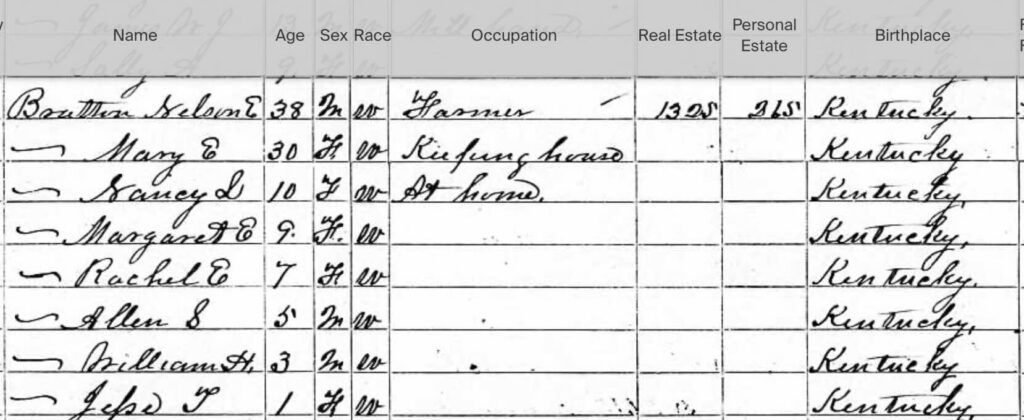 Name Age Sex Race Occupation Real Estate Personal Estate Birthplace
James W J 13 M w Kentucky
Sally A 9 F w Kentucky
Bratton Nelson E 38 M W Farmer 1325 265 Kentucky.
— Mary E 30 F. W Keeping house Kentucky
— Nancy L 10 F W At home. Kentucky,
— Margaret E 9. F. W Kentucky,
— Rachel E 7 F W Kentucky.
— Allen S 5 M W Kentucky,
— William H. 3 M W Kentucky
— Jesse T 1 F W Kentucky,